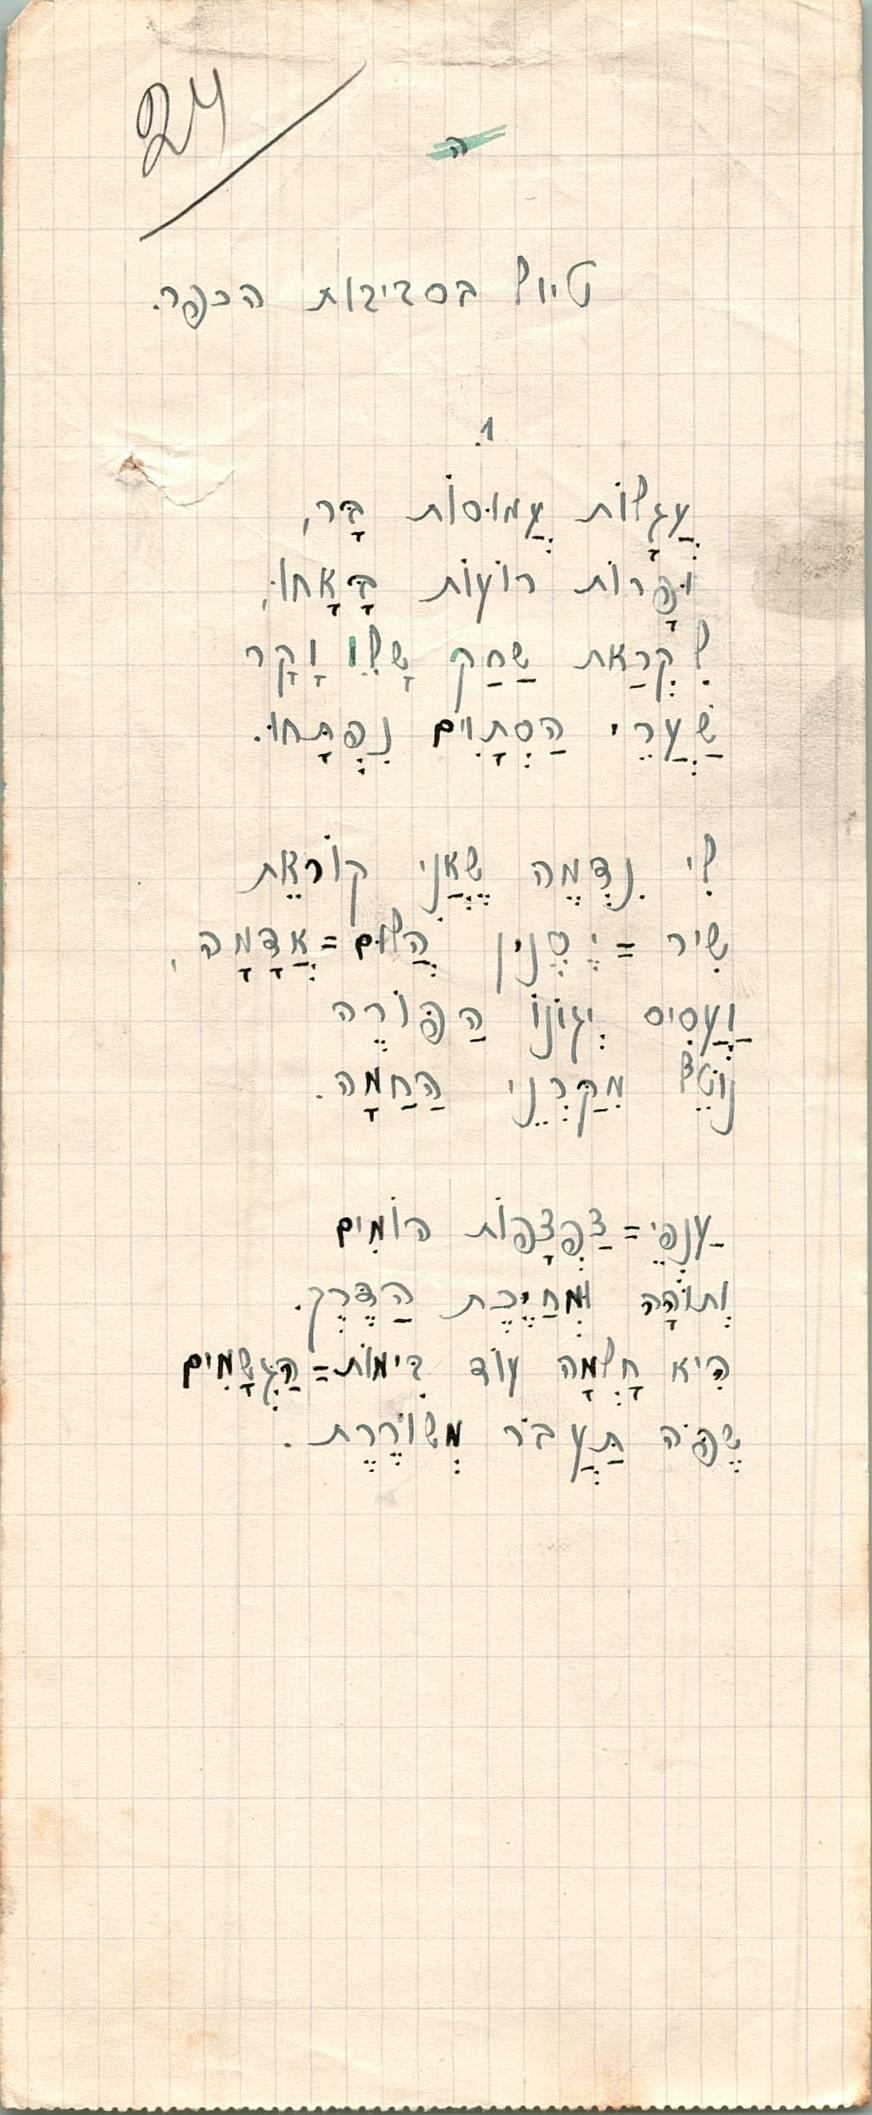 24
ה
טיול בסביבות הכפר.
1.
עֲגָלוֹת עֲמוּסוֹת בָּר,
וּפָרוֹת רוֹעוֹת בָּאָחוּ,
לִקְרַאת שַׁחַק שָׁלֵו וָקָר
שַׁעֲרֵי הַסְּתָוִים נִפְתָּחוּ.
לִי נִדְמֶה שֶׁאֲנִי קוֹרֵאת
שִׁיר = יִסֳּנִין הֲלוּם = אֲדָמָה,
וַעֲסִיס יְגוֹנוֹ הַפּוֹרֶה
נוֹטֵל מִקַּרְנֵי הַחַמָּה.
עַנְפֵי = צַפְצָפוֹת הוֹמִים
וְתוֹהָה וּמְחַיֶּכֶת הַדֶּרֶךְ.
הִיא חָלְמָה עוֹד בִּימוֹת = הַגְּשָׁמִים
שֶׁפֹּה תַּעֲבֹר מְשׁוֹרֶרֶת.